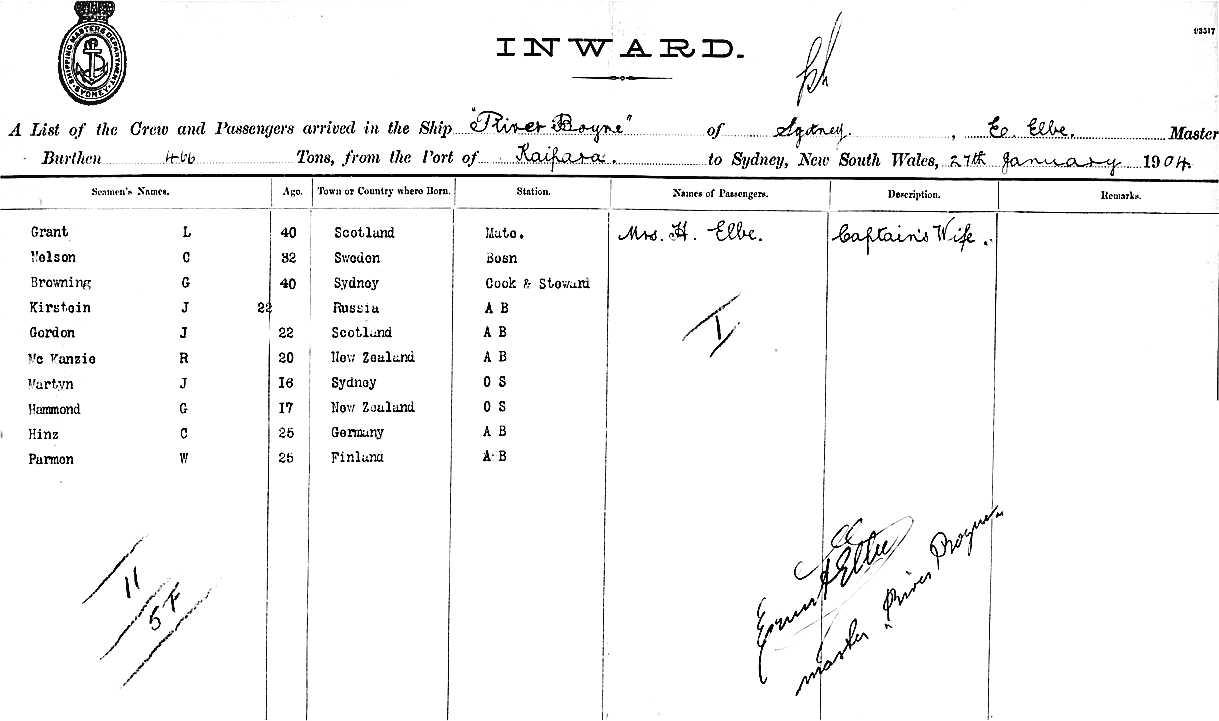 SHIPPING MASTERS DEPARTMENT. SYDNEY.
03517
INWARD.
A List of the Crew and Passengers arrived in the Ship "River Boyne" of Sydney. , E. Elbe. Master
Burthen 466 Tons, from the Port of Kaipara. to Sydney, New South Wales, 27th January 1904.
Seamen's Names. Age. Town or Country where Born. Station. Names of Passengers. Description. Remarks.
Grant L 40 Scotland Mate. Mrs. H. Elbe. Captain's Wife.
Nelson C 32 Sweden Bosn
Browning G 40 Sydney Cook & Steward
Kirstein J 22 Russia A B
Gordon J 22 Scotland A B
Mc Kanzie R 20 New Zealand A B
Martyn J 16 Sydney O S
Hammond G 17 New Zealand O S
Hinz C 25 Germany A B
Parmon W 25 Finland A B
1
11
5 F
Elbe
master "River Boyne"